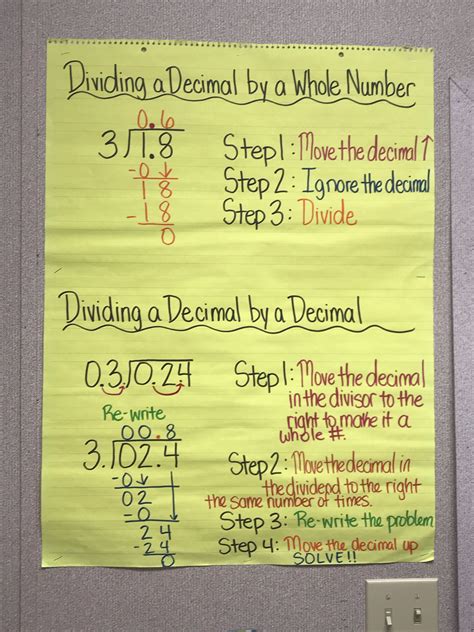 Dividing a Decimal by a Whole Number
0.6
3√1.8
-0↓
18
-18
0
Step 1: Move the decimal ↑
Step 2: Ignore the decimal
Step 3: Divide
Dividing a Decimal by a Decimal
0.3.√0.24
Re-write
00.8
3.√02.4
-0↓
02
-0
24
-24
0
Step 1: Move the decimal
in the divisor to the
right to make it a
whole #.
Step 2: Move the decimal in
the dividend to the right
the same number of times.
Step 3: Re-write the problem
Step 4: Move the decimal up
SOLVE!!